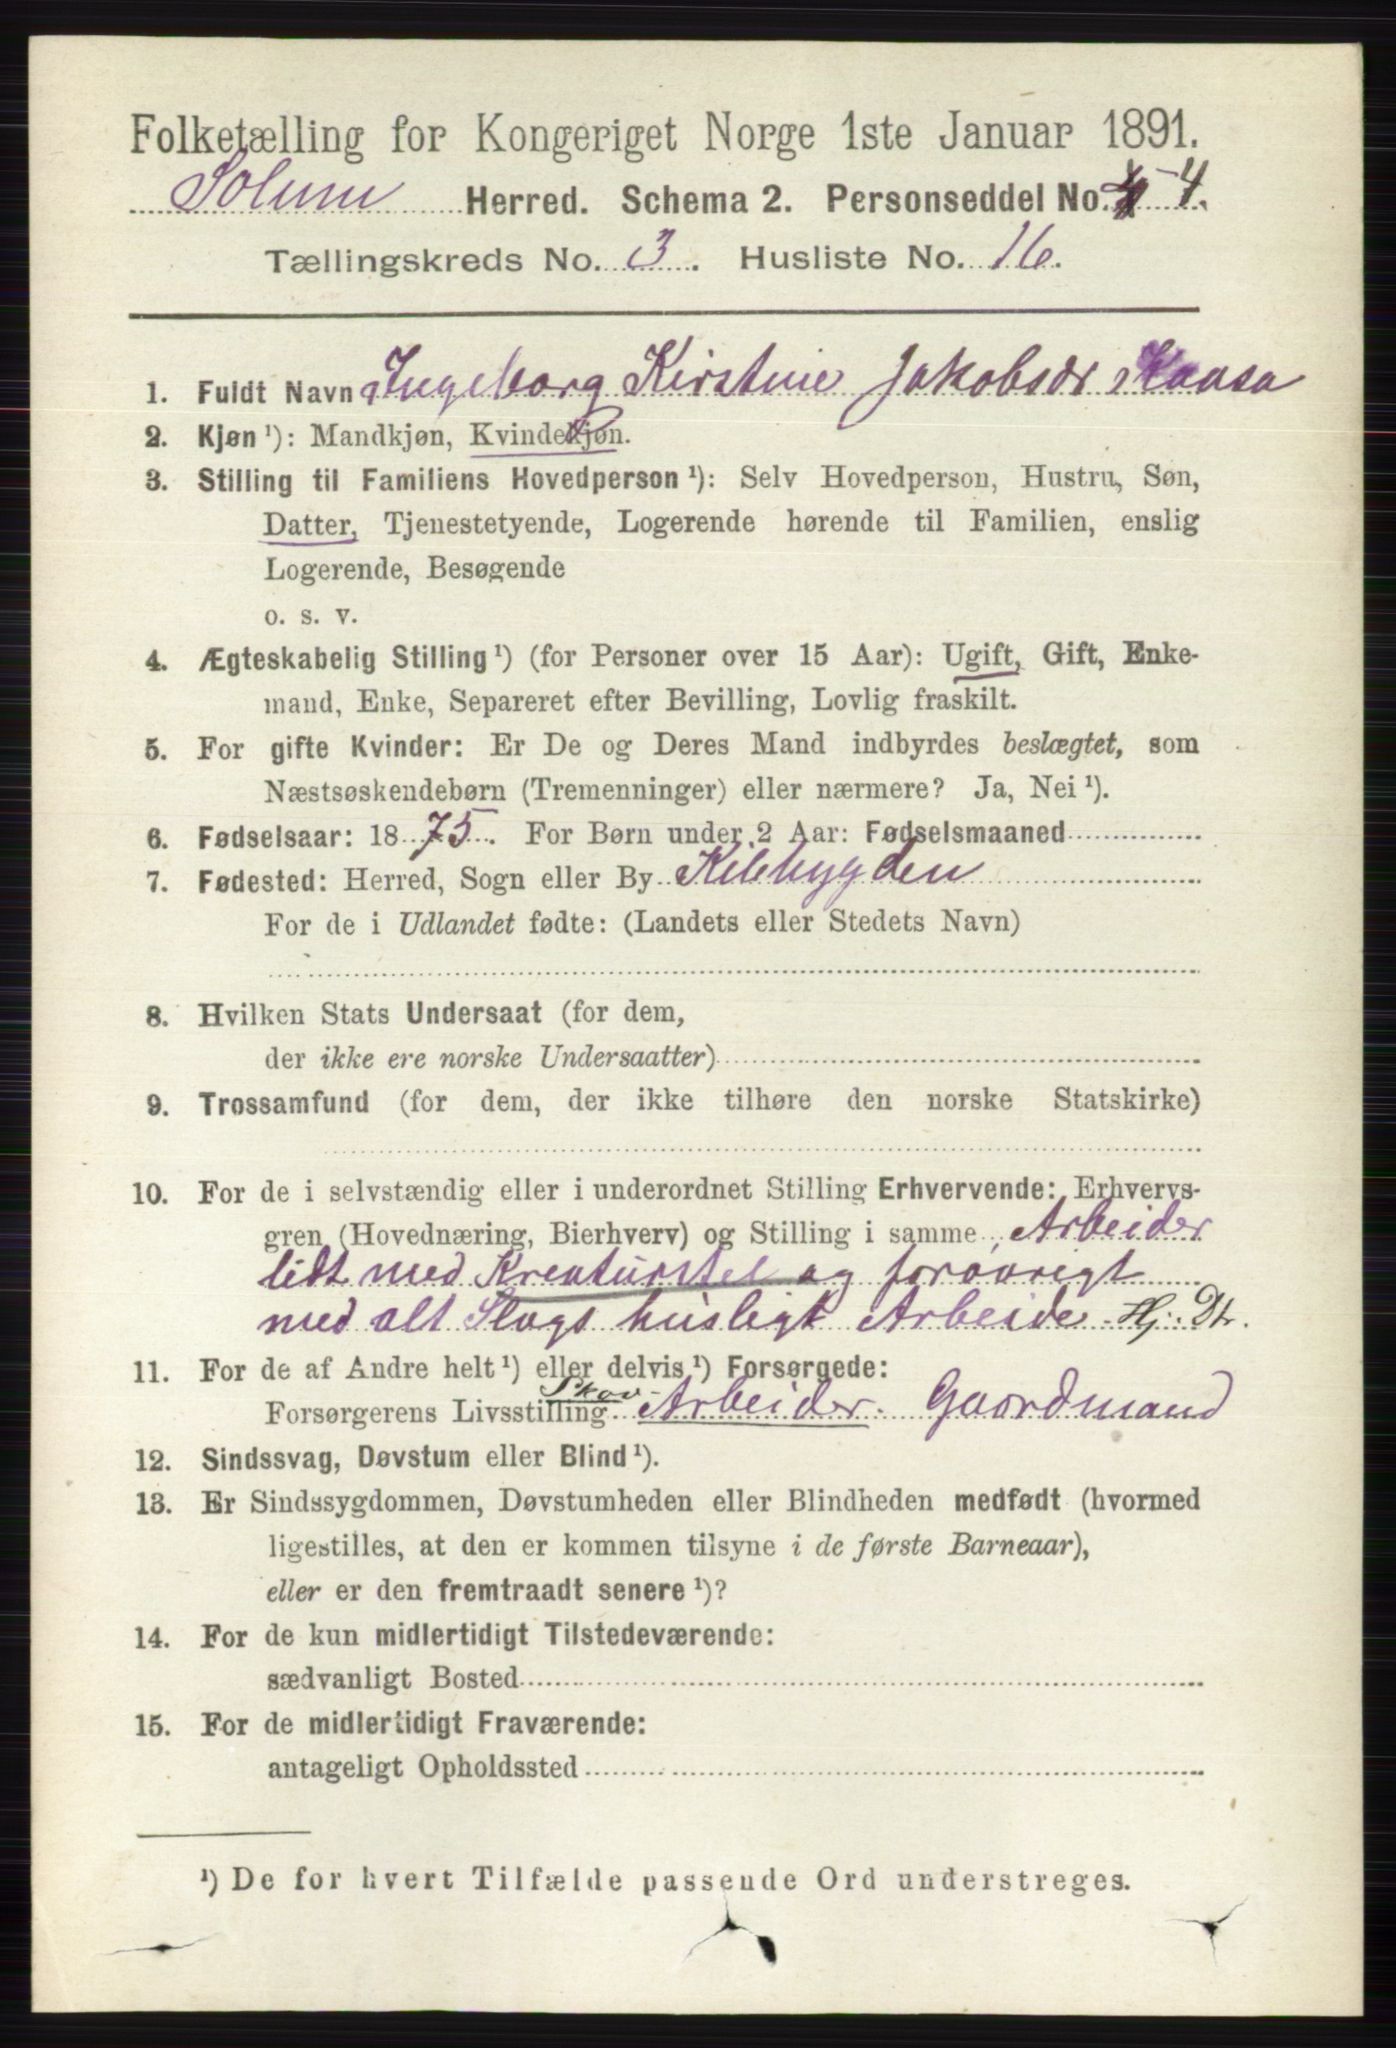 Folketælling for Kongeriget Norge 1ste Januar 1891.
Solum Herred. Schema 2. Personseddel No. 4.
Tællingskreds No. 3. Husliste No. 16.
1. Fuldt Navn Ingeborg Kirstine Jakobsdr Kaasa
2. Kjøn ¹): Mandkjøn, Kvindekjøn.
3. Stilling til Familiens Hovedperson ¹): Selv Hovedperson, Hustru, Søn,
Datter, Tjenestetyende, Logerende hørende til Familien, enslig
Logerende, Besøgende
o. s. v.
4. Ægteskabelig Stilling ¹) (for Personer over 15 Aar): Ugift, Gift, Enke-
mand, Enke, Separeret efter Bevilling, Lovlig fraskilt.
5. For gifte Kvinder: Er De og Deres Mand indbyrdes beslægtet, som
Næstsøskendebørn (Tremenninger) eller nærmere? Ja, Nei ¹).
6. Fødselsaar: 1875. For Børn under 2 Aar: Fødselsmaaned
7. Fødested: Herred, Sogn eller By Kilebygden
For de i Udlandet fødte: (Landets eller Stedets Navn)
8. Hvilken Stats Undersaat (for dem,
der ikke ere norske Undersaatter)
9. Trossamfund (for dem, der ikke tilhøre den norske Statskirke)
10. For de i selvstændig eller i underordnet Stilling Erhvervende: Erhvervs-
gren (Hovednæring, Bierhverv) og Stilling i samme Arbeider
lidt med Kreaturstel og forøvrigt
med alt Slags husligt Arbeide Hj. Dtr.
11. For de af Andre helt ¹) eller delvis ¹) Forsørgede:
Forsørgerens Livsstilling Skov-Arbeider. Gaardmand
12. Sindssvag, Døvstum eller Blind ¹).
13. Er Sindssygdommen, Døvstumheden eller Blindheden medfødt (hvormed
ligestilles, at den er kommen tilsyne i de første Barneaar),
eller er den fremtraadt senere ¹)?
14. For de kun midlertidigt Tilstedeværende:
sædvanligt Bosted
15. For de midlertidigt Fraværende:
antageligt Opholdssted
¹) De for hvert Tilfælde passende Ord understreges.